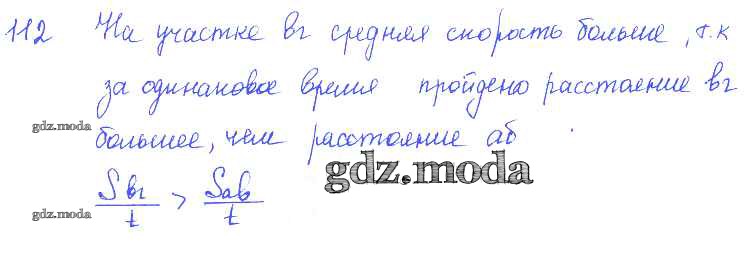 112 На участке вг средняя скорость больше, т.к
за одинаковое время пройдено расстояние вг
gdz.moda
большее, чем расстояние аб
gdz.moda
Sвг/t > Sаб/t
gdz.moda